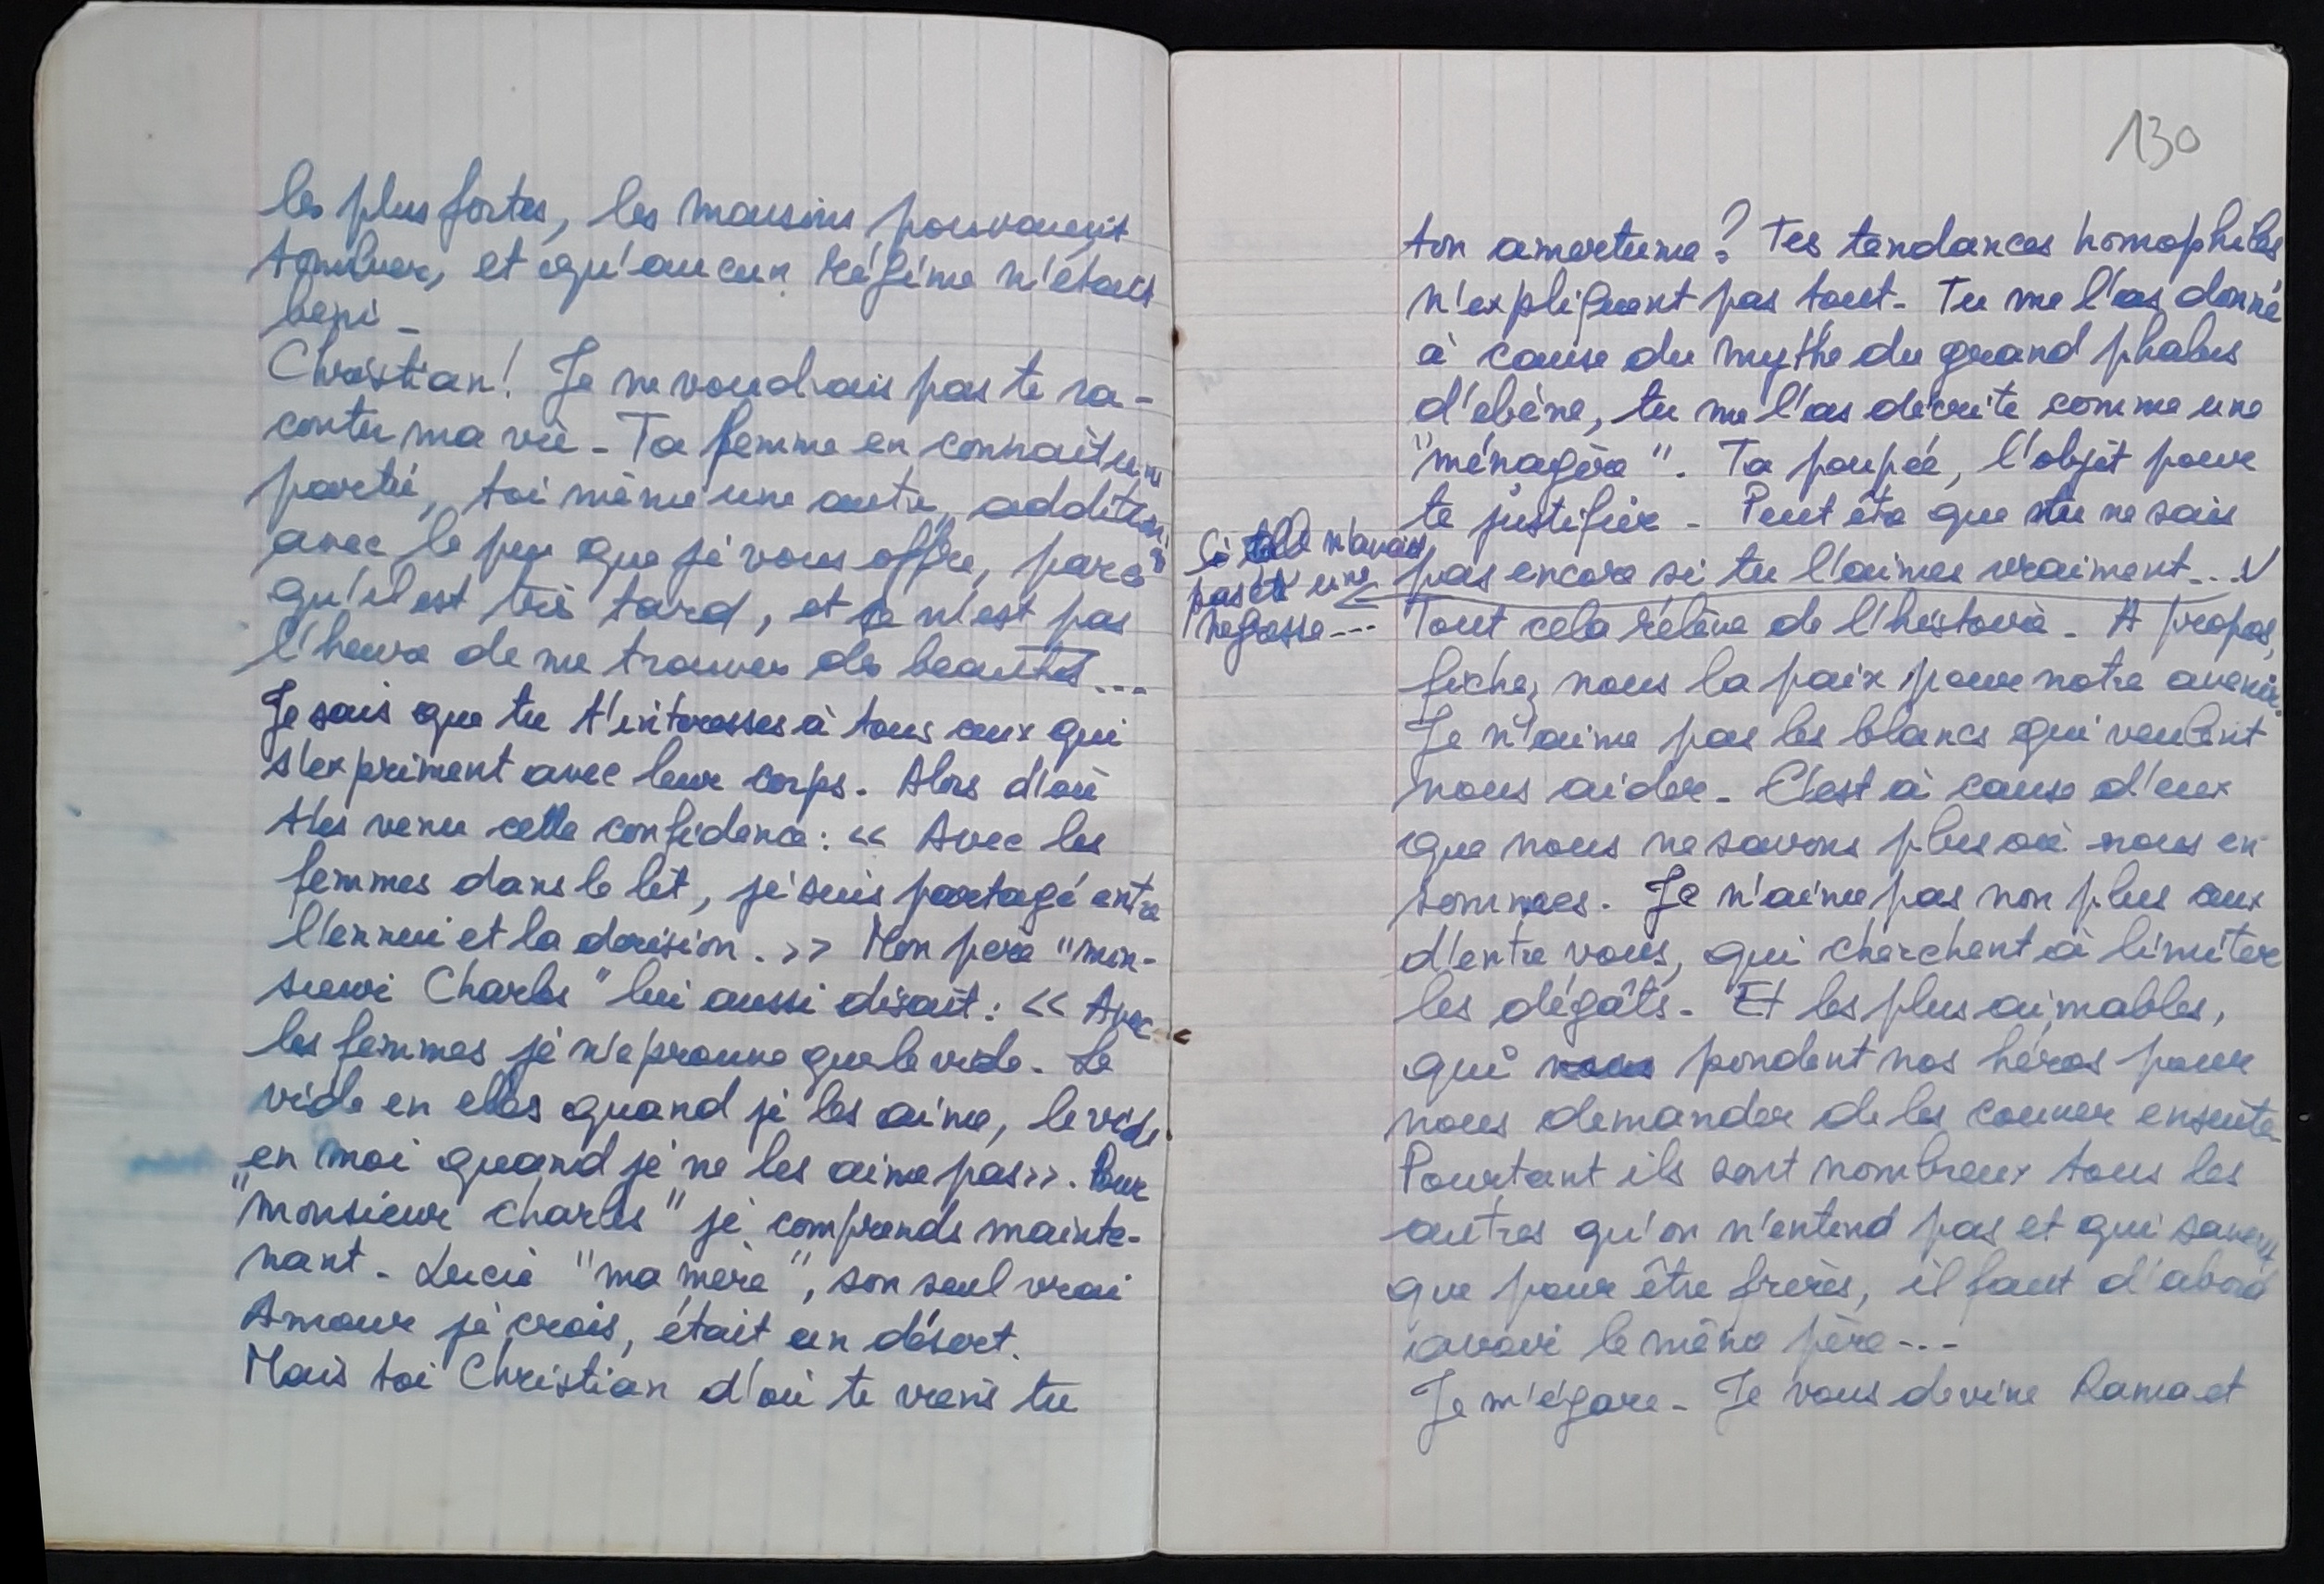 les plus fortes, les maisons pouvaient
tomber, et qu'aucun régime n'était
beni -
Christian! Je ne voudrais pas te ra-
conter ma vie - Ta femme en connaît une
partie, toi même une autre, additionnés
avec le peu que je vous offre, parce
qu'il est très tard, et ce n'est pas
l'heure de me trouver des beautés...
Je sais que tu t'interesses à tous ceux qui
s'expriment avec leur corps. Alors d'où
t'es venu cette confidence: << Avec les
femmes dans le lit, je suis partagé entre
l'ennui et la derision. >> Mon père "mon-
sieur Charles" lui aussi disait: << Avec
les femmes je n'éprouve que le vide. Le
vide en elles quand je les aime, le vide
en moi quand je ne les aime pas>>. Pour
"monsieur Charles" je comprends mainte-
nant - Lucie "ma mère", son seul vrai
Amour je crois, était un désert.
Mais toi Christian d'où te viens tu
130
ton amertume? Tes tendances homophiles
n'expliquent pas tout - Tu me l'as donné
à cause du mythe du grand phalus
d'ebène, tu me l'as décrite comme une
"ménagère". Ta poupée, l'objet pour
te justifier - Peut être que tu ne sais
pas encore si tu l'aimes vraiment...V
Si elle n'avait
pas été une
négresse---
Tout cela rélève de l'histoire - A propos,
fichez nous la paix pour notre avenir.
Je n'aime pas les blancs qui veulent
nous aider - C'est à cause d'eux
que nous ne savons plus où nous en
sommes. Je n'aime pas non plus ceux
d'entre vous, qui cherchent à limiter
les dégâts - Et les plus aimables,
qui nous pondent nos héros pour
nous demander de les couver ensuite
Pourtant ils sont nombreux tous les
autres qu'on n'entend pas et qui savent
que pour être frères, il faut d'abord
avoir le même père---
Je m'égare - Je vous devine Rama et